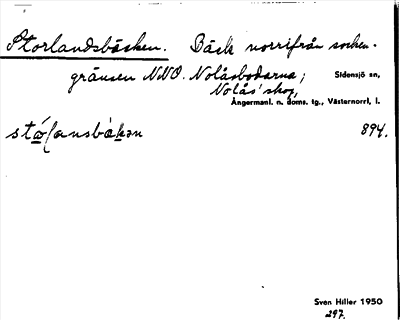 Storlandsbäcken. Bäck norrifrån socken-
gränsen NNO. Nolåsbodarna; Sidensjö sn,
Nolås' skog,
Ångermanl. n. doms. tg., Västernorrl, l.
894.
Sven Hiller 1950
297.